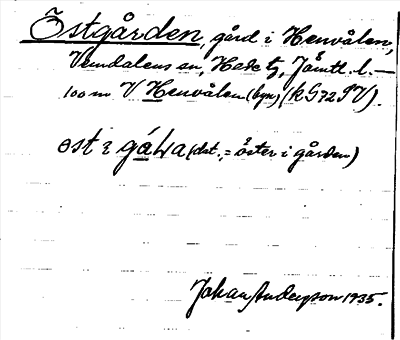 Östgården, gård i Henvålen,
Vemdalens sn, Hede tg, Jämtl. l. —
100 m V Henvålen (byn) (kG72SV).
öst i gáɫa (dat., = öster i gården)
Johan Anderzson 1935.